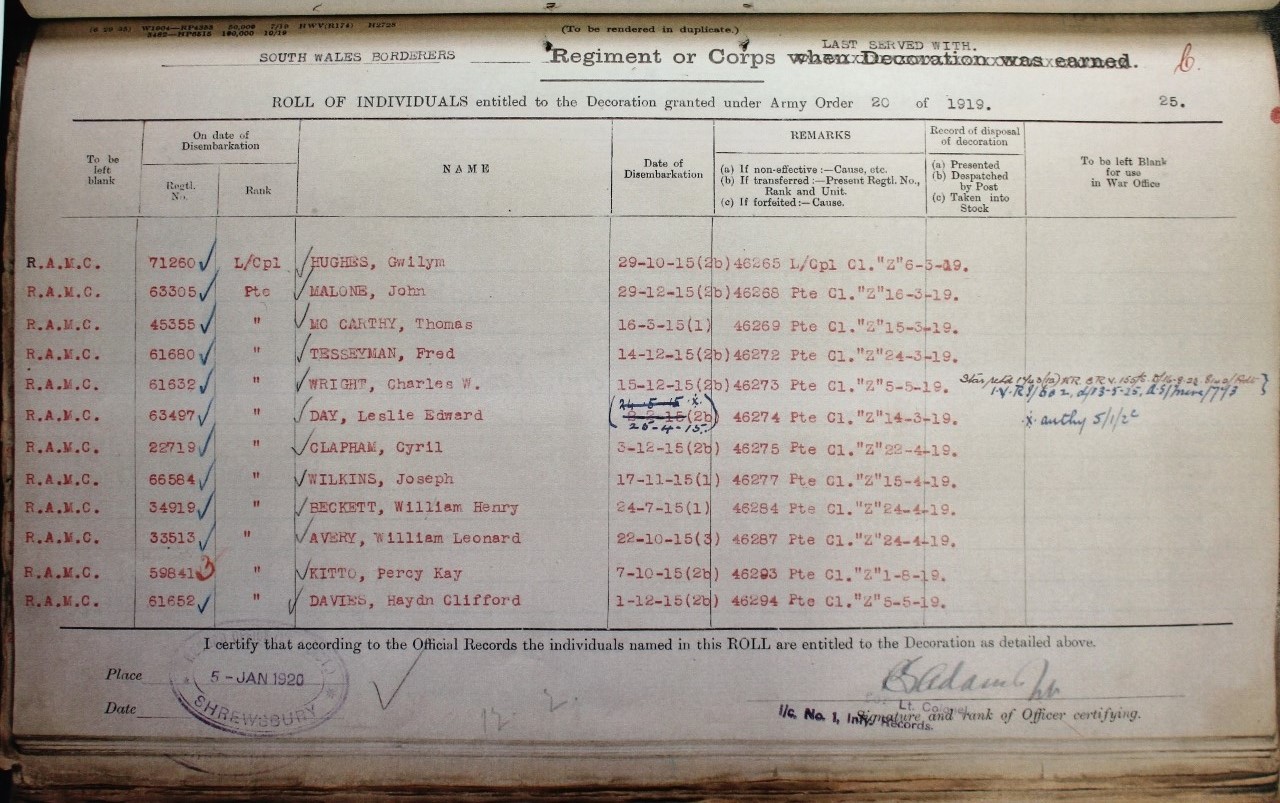 (6 29 35) W1904—HP4353 50,000 7/19 HWV(R174) H2728
5462—HP6515 190,000 10/19
(To be rendered in duplicate.)
LAST SERVED WITH.
SOUTH WALES BORDERERS Regiment or Corps when Decoration was earned.
ROLL OF INDIVIDUALS entitled to the Decoration granted under Army Order 20 of 1919. 25.
To be left blank
On date of Disembarkation
Regtl. No.
Rank
NAME
Date of Disembarkation
REMARKS
(a) If non-effective:—Cause, etc.
(b) If transferred:—Present Regtl. No., Rank and Unit.
(c) If forfeited:—Cause.
Record of disposal of decoration
(a) Presented
(b) Despatched by Post
(c) Taken into Stock
To be left Blank for use in War Office
R.A.M.C. 71260 L/Cpl HUGHES, Gwilym 29-10-15(2b) 46265 L/Cpl Cl."Z"6-3-19.
R.A.M.C. 63305 Pte MALONE, John 29-12-15(2b) 46268 Pte Cl."Z"16-3-19.
R.A.M.C. 45355 " MC CARTHY, Thomas 16-3-15(1) 46269 Pte Cl."Z"15-3-19.
R.A.M.C. 61680 " TESSEYMAN, Fred 14-12-15(2b) 46272 Pte Cl."Z"24-3-19.
R.A.M.C. 61632 " WRIGHT, Charles W. 15-12-15(2b) 46273 Pte Cl."Z"5-5-19. Star
24-5-15 x
R.A.M.C. 63497 " DAY, Leslie Edward (2b) 46274 Pte Cl."Z"14-3-19. x authy 5/1/2c
25-4-15.
R.A.M.C. 22719 " CLAPHAM, Cyril 3-12-15(2b) 46275 Pte Cl."Z"22-4-19.
R.A.M.C. 66584 " WILKINS, Joseph 17-11-15(1) 46277 Pte Cl."Z"15-4-19.
R.A.M.C. 34919 " BECKETT, William Henry 24-7-15(1) 46284 Pte Cl."Z"24-4-19.
R.A.M.C. 33513 " AVERY, William Leonard 22-10-15(3) 46287 Pte Cl."Z"24-4-19.
R.A.M.C. 59841 3 " KITTO, Percy Kay 7-10-15(2b) 46293 Pte Cl."Z"1-8-19.
R.A.M.C. 61652 " DAVIES, Haydn Clifford 1-12-15(2b) 46294 Pte Cl."Z"5-5-19.
I certify that according to the Official Records the individuals named in this ROLL are entitled to the Decoration as detailed above.
Place
5 - JAN 1920
SHREWSBURY
Date
Lt. Colonel
I/c. No. 1, Infy. Records.
Signature and rank of Officer certifying.